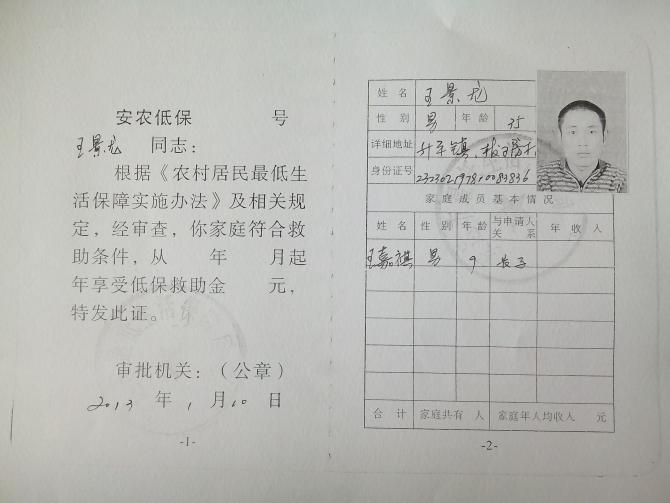 安农低保 号
王景龙 同志：
根据《农村居民最低生
活保障实施办法》及相关规
定，经审查，你家庭符合救
助条件，从 年 月起
年享受低保救助金 元，
特发此证。
审批机关：（公章）
2013 年 1 月 10 日
-1-
姓名 王景龙
性别 男 年龄 35
详细地址 升平镇
身份证号
家庭成员基本情况
姓名 性别 年龄 与申请人关系 年收入
王嘉祺 男 9 长子
合计 家庭共有 人 家庭年人均收入 元
-2-